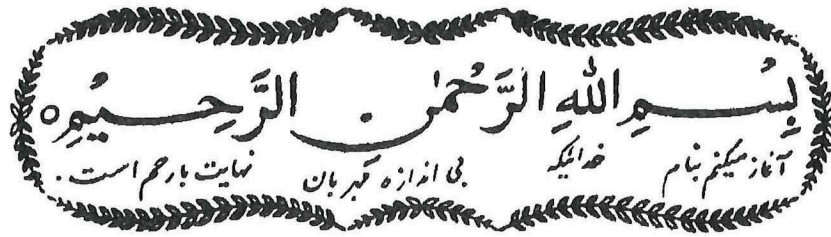 بِسْمِ اللهِ الرَّحْمٰنِ الرَّحِيْمِ ○
آغاز میکنم بنام خدائیکه بی اندازه مهربان نهایت بارحم است.